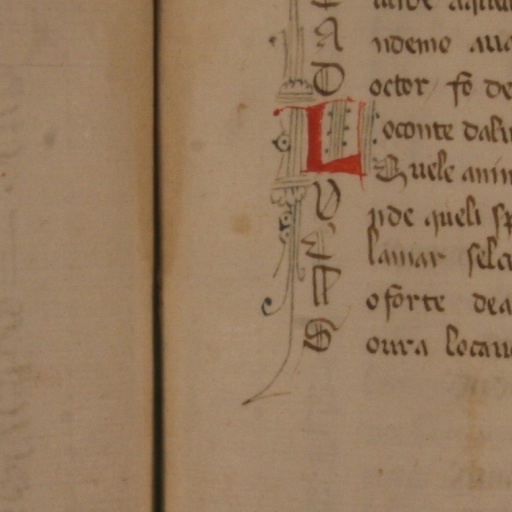 A ndemo
D octor fo de
L oconte dalu
Quele anim
V ide queli sp
E lamar selc
P oforte dea
S oura locau